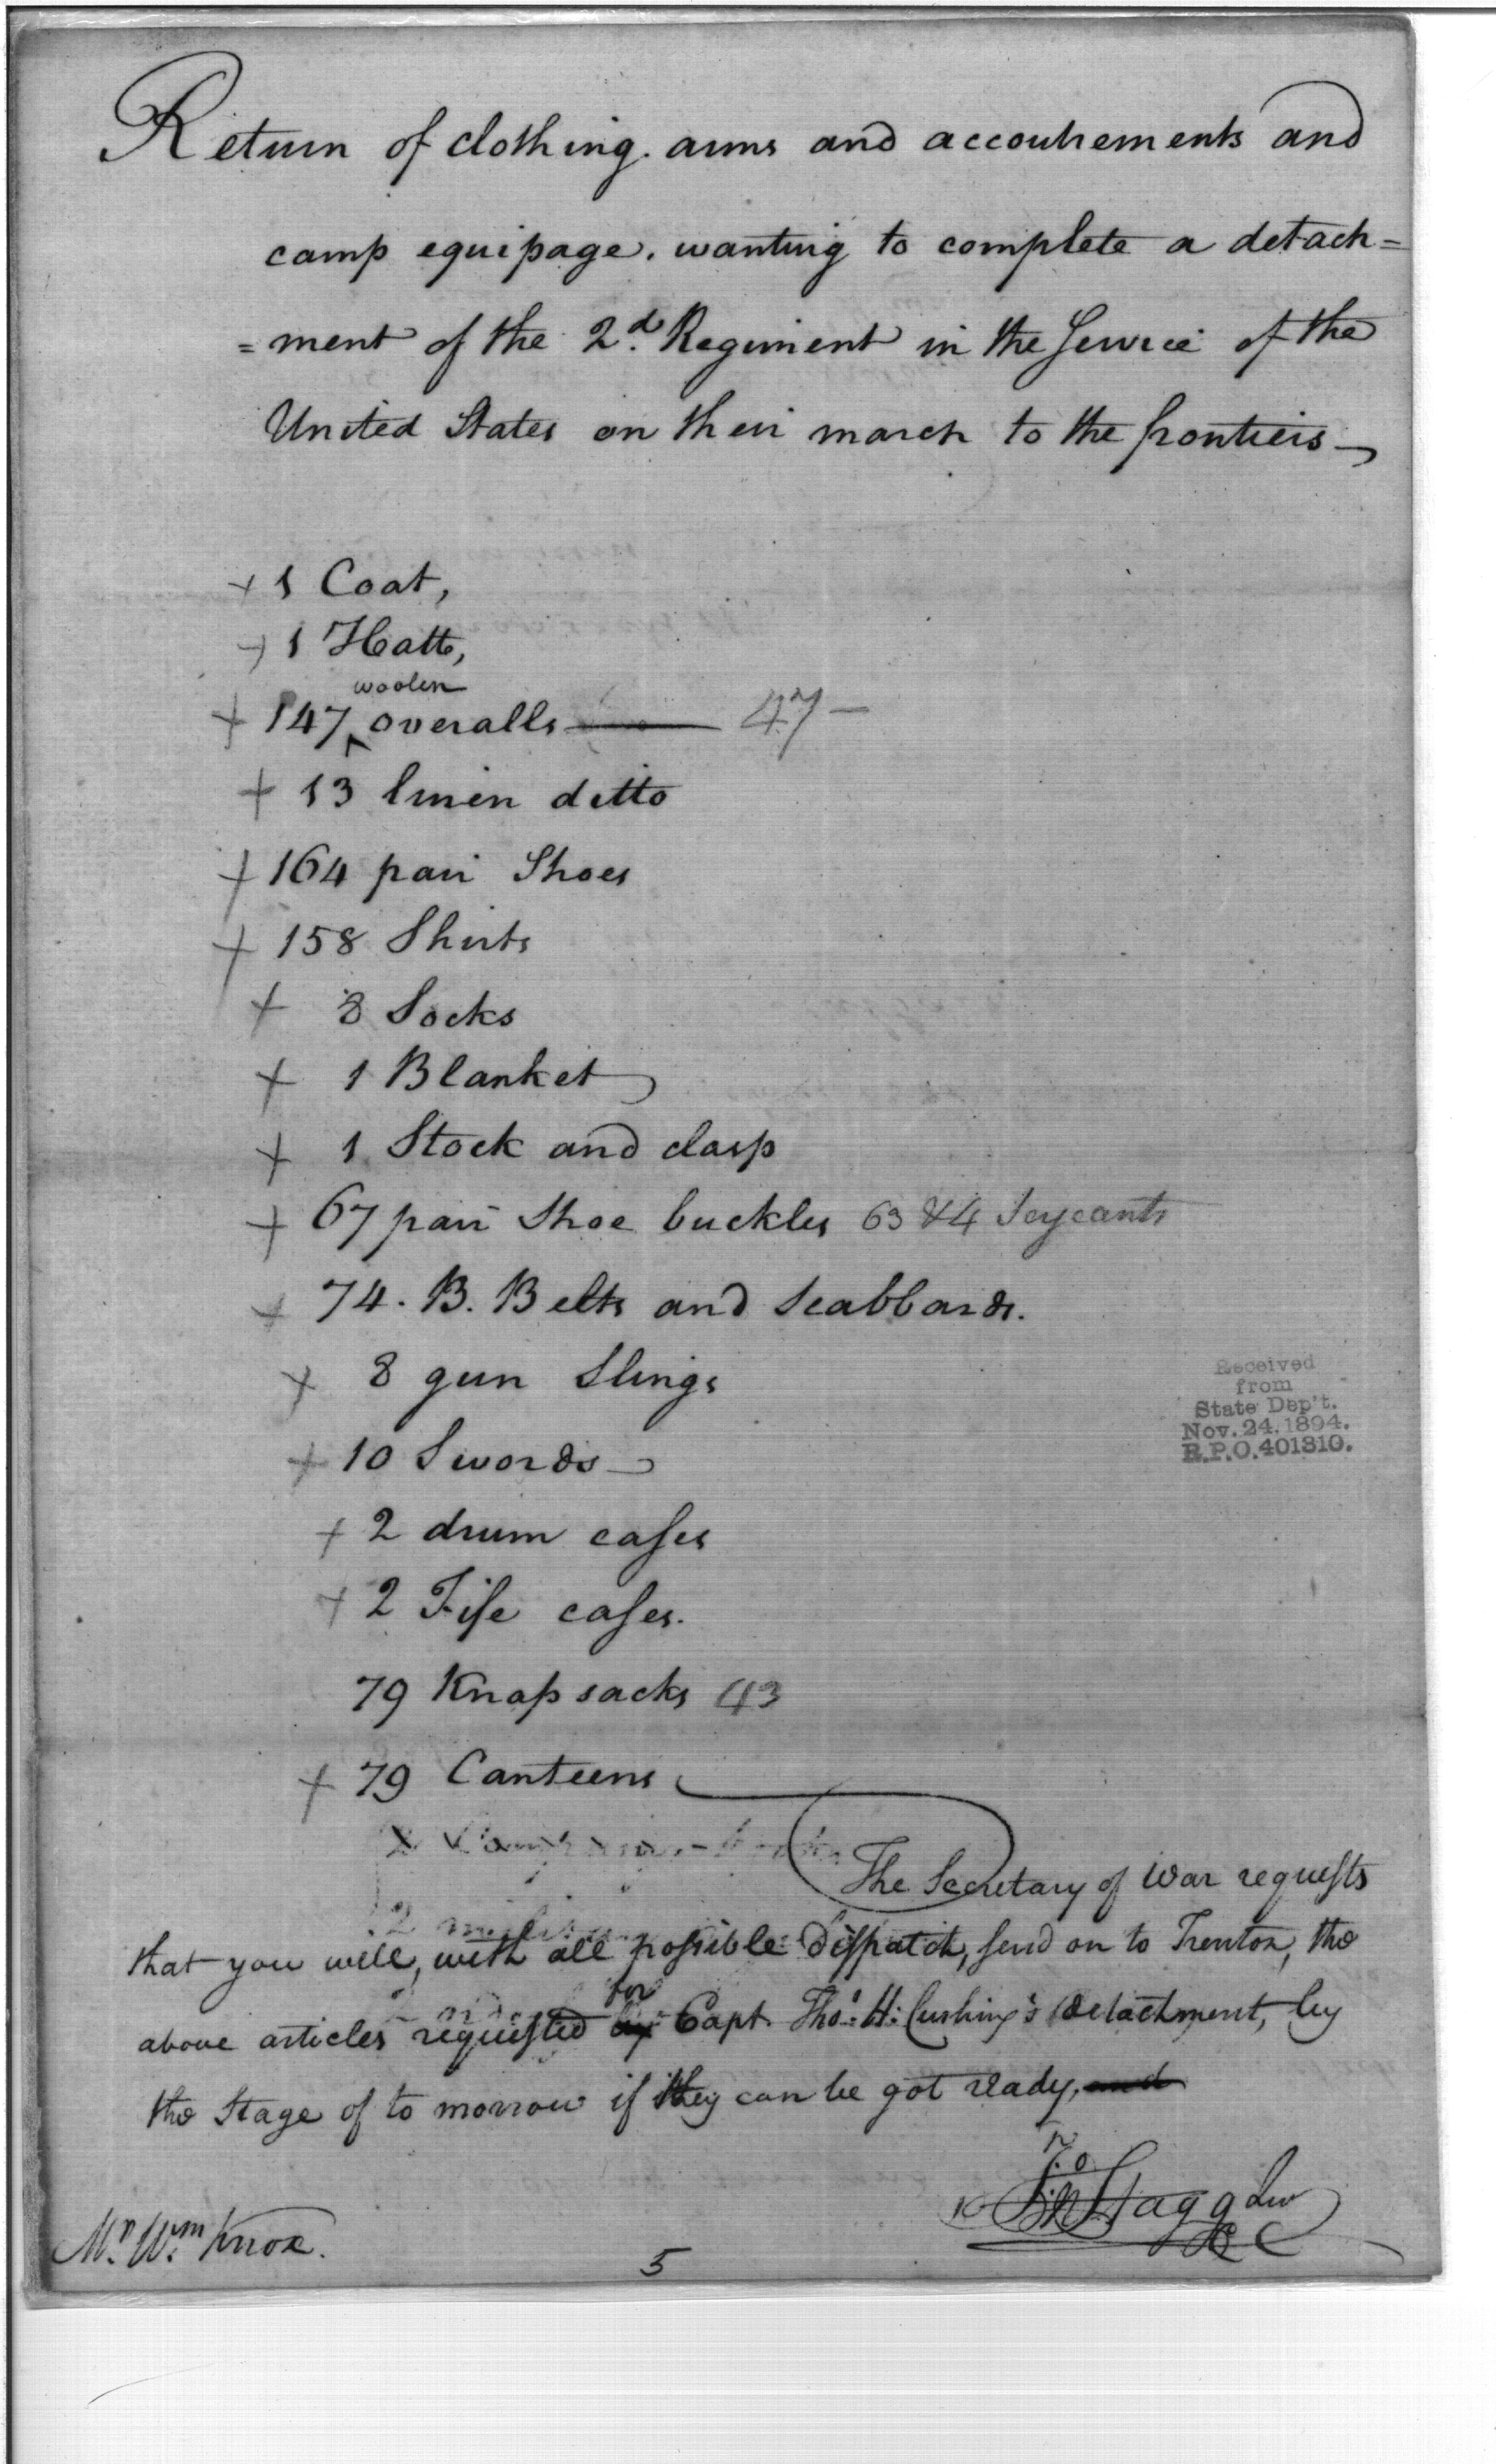 Return of clothing. arms and accoutrements and
camp equipage. wanting to complete a detach=
=ment of the 2.d Regiment in the Service of the
United States on their march to the frontiers
+ 1 Coat,
+ 1 Hatt,
woolen
+ 147 ^ overalls — 47 —
+ 13 linen ditto
+ 164 pair Shoes
+ 158 Shirts
+ 8 Socks
+ 1 Blanket
+ 1 Stock and clasp
+ 67 pair Shoe buckles 63 & 4 Serjeants
+ 74. B. Belts and Scabbards.
+ 8 gun Slings
+ 10 Swords
+ 2 drum cases
+ 2 Fife cases.
79 Knapsacks 43
+ 79 Canteens
Received
from
State Dep't.
Nov. 24, 1894.
R.P.O. 401310.
The Secretary of War requests
that you will, with all possible dispatch, send on to Trenton, the
for
above articles requested by Capt. Thos. H: Cushing's detachment, by
the Stage of to morrow if they can be got ready, and
Jno Stagg Jun
C C
Mr. Wm Knox.
5